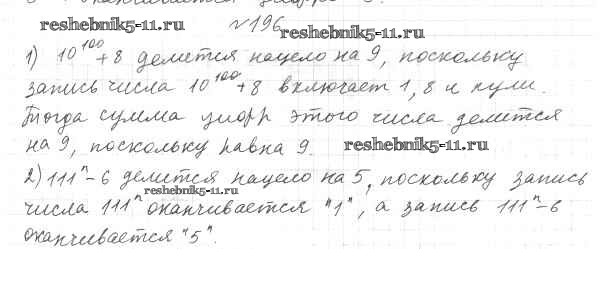 reshebnik5-11.ru №196 reshebnik5-11.ru
1) 10¹⁰⁰+8 делется нацело на 9, поскольку
запись числа 10¹⁰⁰+8 включает 1, 8 и нули.
Тогда сумма цифр этого числа делется
на 9, поскольку равна 9. reshebnik5-11.ru
2) 111ⁿ-6 делется нацело на 5, поскольку запись
reshebnik5-11.ru
числа 111ⁿ оканчивается "1", а запись 111ⁿ-6
оканчивается "5".